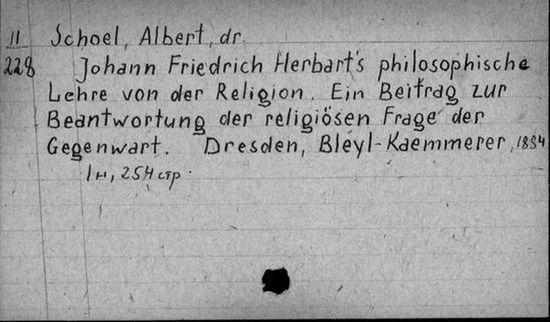 II Schoel, Albert, dr.
228 Johann Friedrich Herbart's philosophische
Lehre von der Religion. Ein Beitrag zur
Beantwortung der religiösen Frage der
Gegenwart. Dresden, Bleyl-Kaemmerer, 1884
1 н, 254 стр.